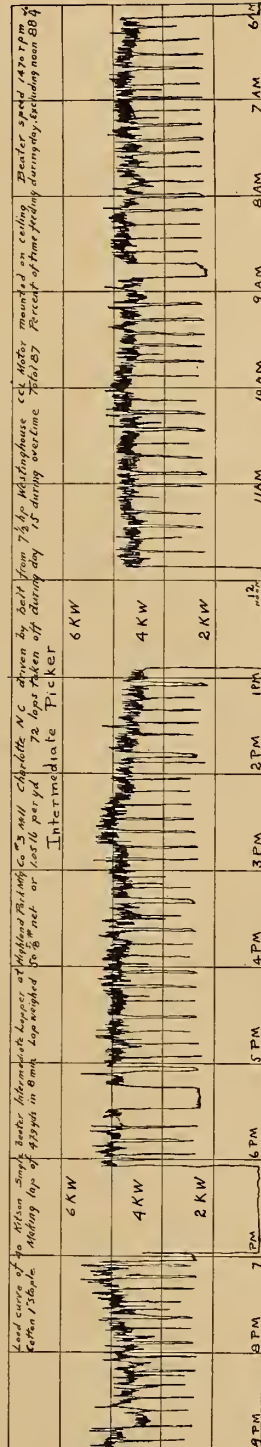 Load curve of 40 Kitson Single Beater Intermediate Lapper at Highland Park Mfg Co #3 Mill Charlotte NC driven by belt from 7½ hp Westinghouse CCL Motor mounted on ceiling Beater speed 1470 rpm
Cotton 1" staple Making lap of 47.9 yds in 8 min Lap weighed 50 net or 1.05 lb per yd 72 laps taken off during day 15 during overtime Total 87 Percent of time feeding during day. Excluding noon 88
Intermediate Picker
6 KW 6 KW
4 KW 4 KW
2 KW 2 KW
9 PM 8 PM 7 PM 6 PM 5 PM 4 PM 3 PM 2 PM 1 PM 12 NOON 11 AM 10 AM 9 AM 8 AM 7 AM 6 AM